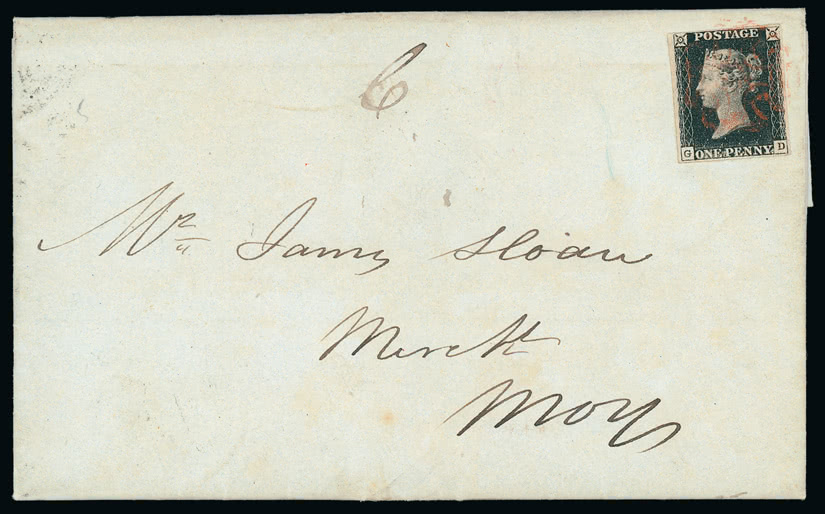 POSTAGE
G D
ONE PENNY
Mr James Sloan
Mercht
Moy